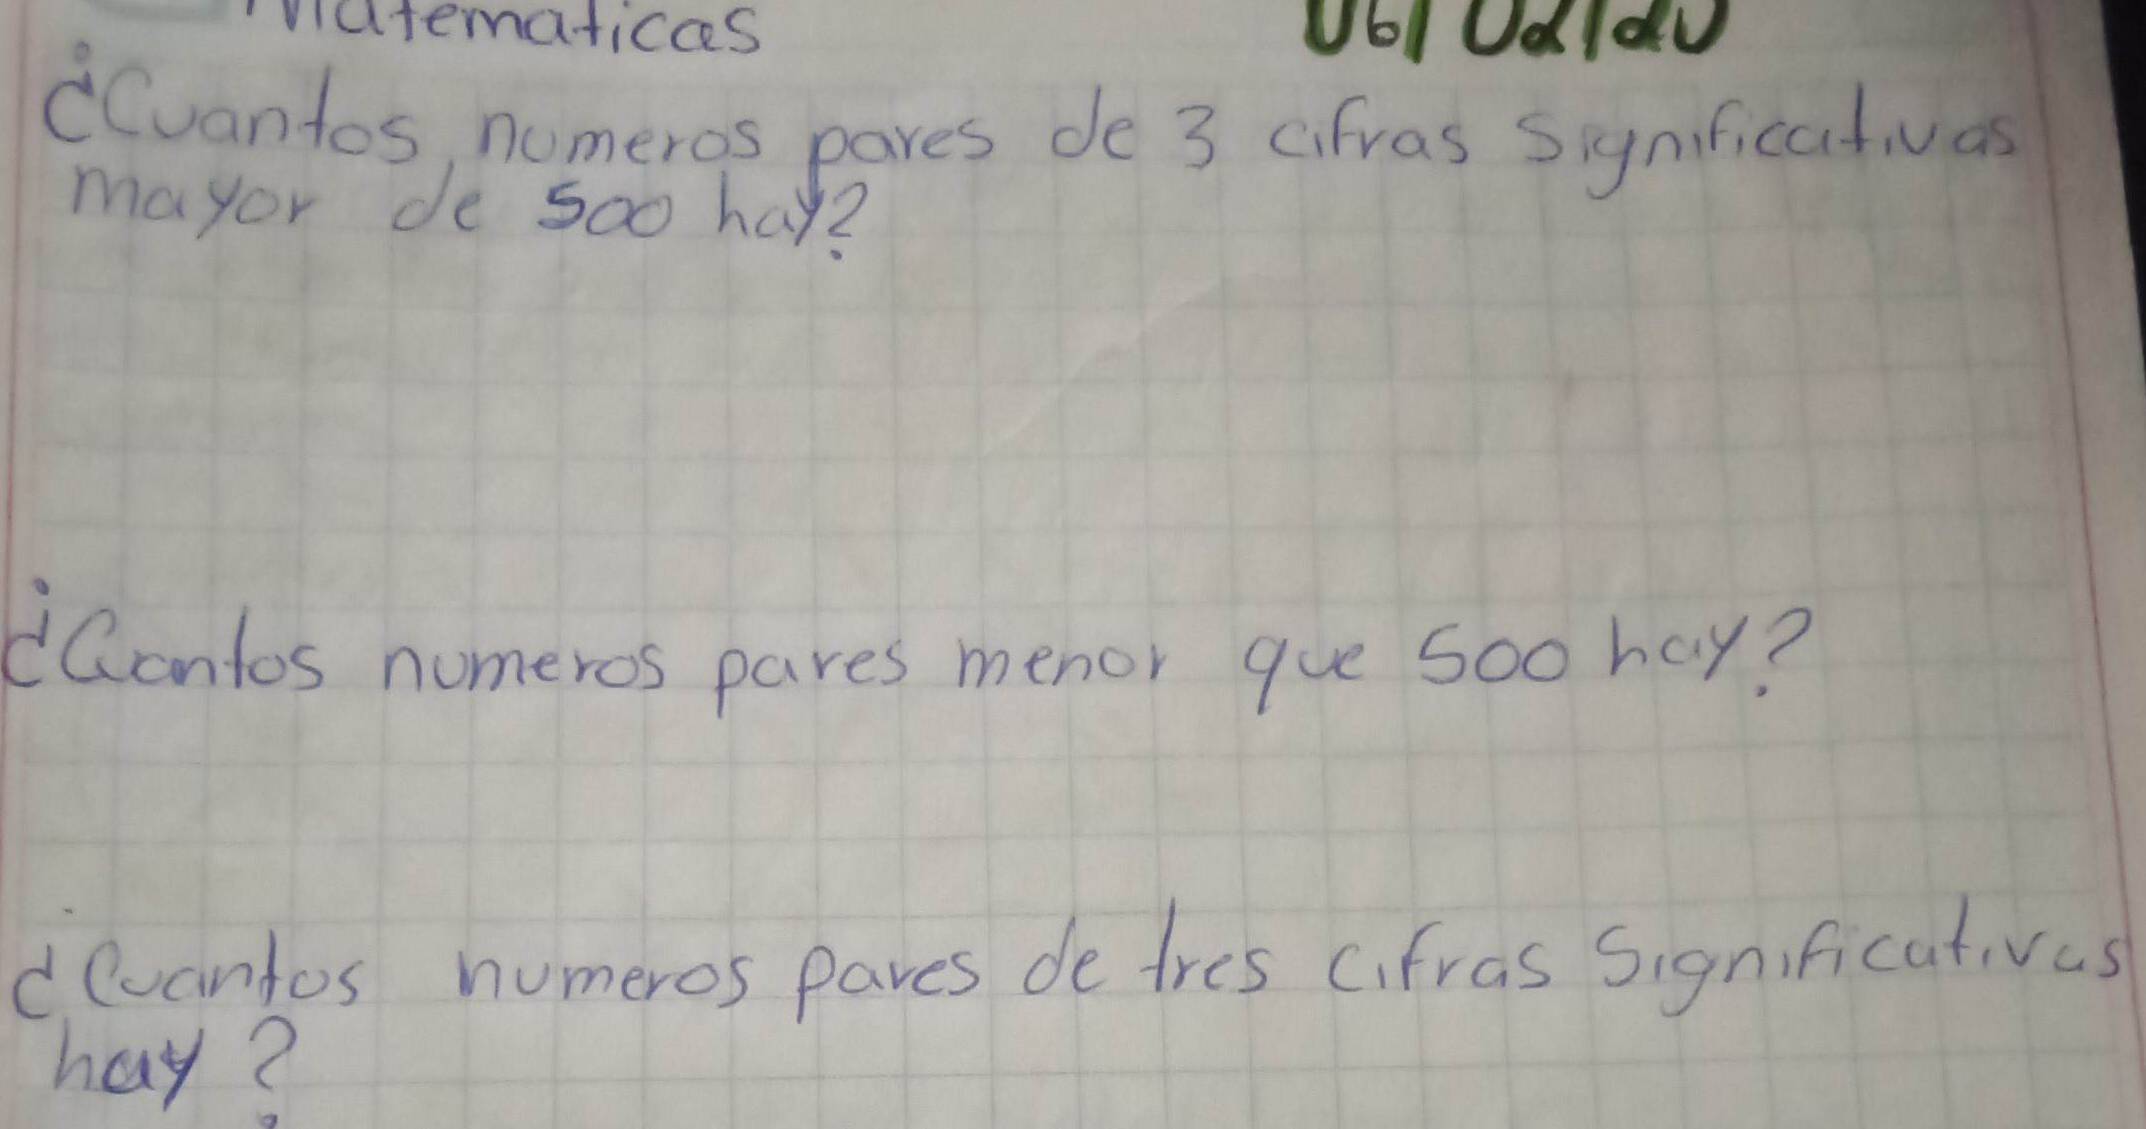 Matematicas
¿Cuantos numeros pares de 3 cifras significativas
mayor de 500 hay?
¿Cuantos numeros pares menor que 500 hay?
¿Cuantos numeros pares de tres cifras significativas
hay?